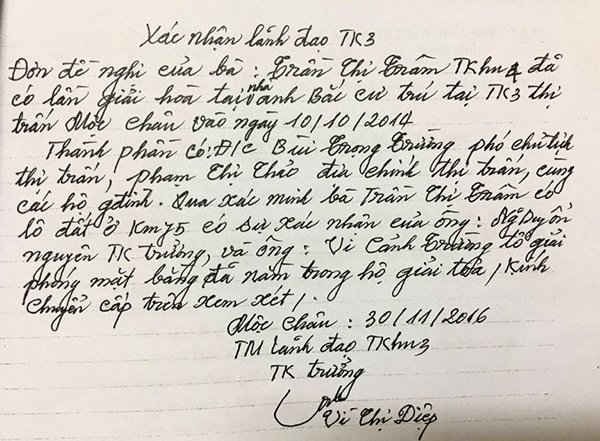 Xác nhận lãnh đạo TK3
Đơn đề nghị của bà: Trần Thị Trâm TKhu 4 đã
có lần giải hòa tại nhà anh Bắc cư trú tại TK3 thị
trấn Mộc Châu vào ngày 10/10/2014
Thành phần có: Đ/C Bùi Trọng Trường phó chủ tịch
thị trấn, phạm Thị Thảo địa chính thị trấn, cùng
các hộ gđình. Qua xác minh bà Trần Thị Trâm có
lô đất ở Km75 có sự xác nhận của ông: Ng Duy Ổn
nguyên TK trưởng, và ông: Vi Cảnh Trường tổ giải
phóng mặt bằng đã nằm trong hộ giải tỏa, Kính
chuyển cấp trên xem xét,.
Mộc Châu: 30/11/2016
TM lãnh đạo TKhu3
TK trưởng
Vì Thị Diệp